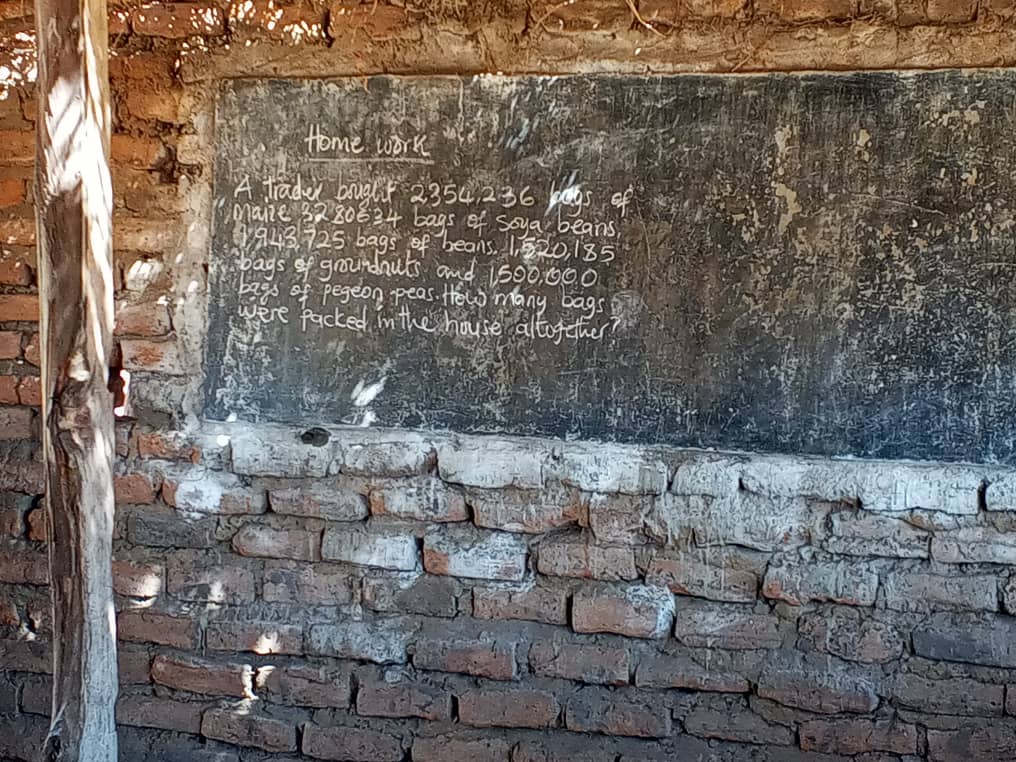 Home work
A trader bought 2354,236 bags of
maize 3280634 bags of Soya beans,
1,943,725 bags of beans. 1,520,185
bags of groundnuts and 1,500,000
bags of pegeon peas. How many bags
were packed in the house altogether?